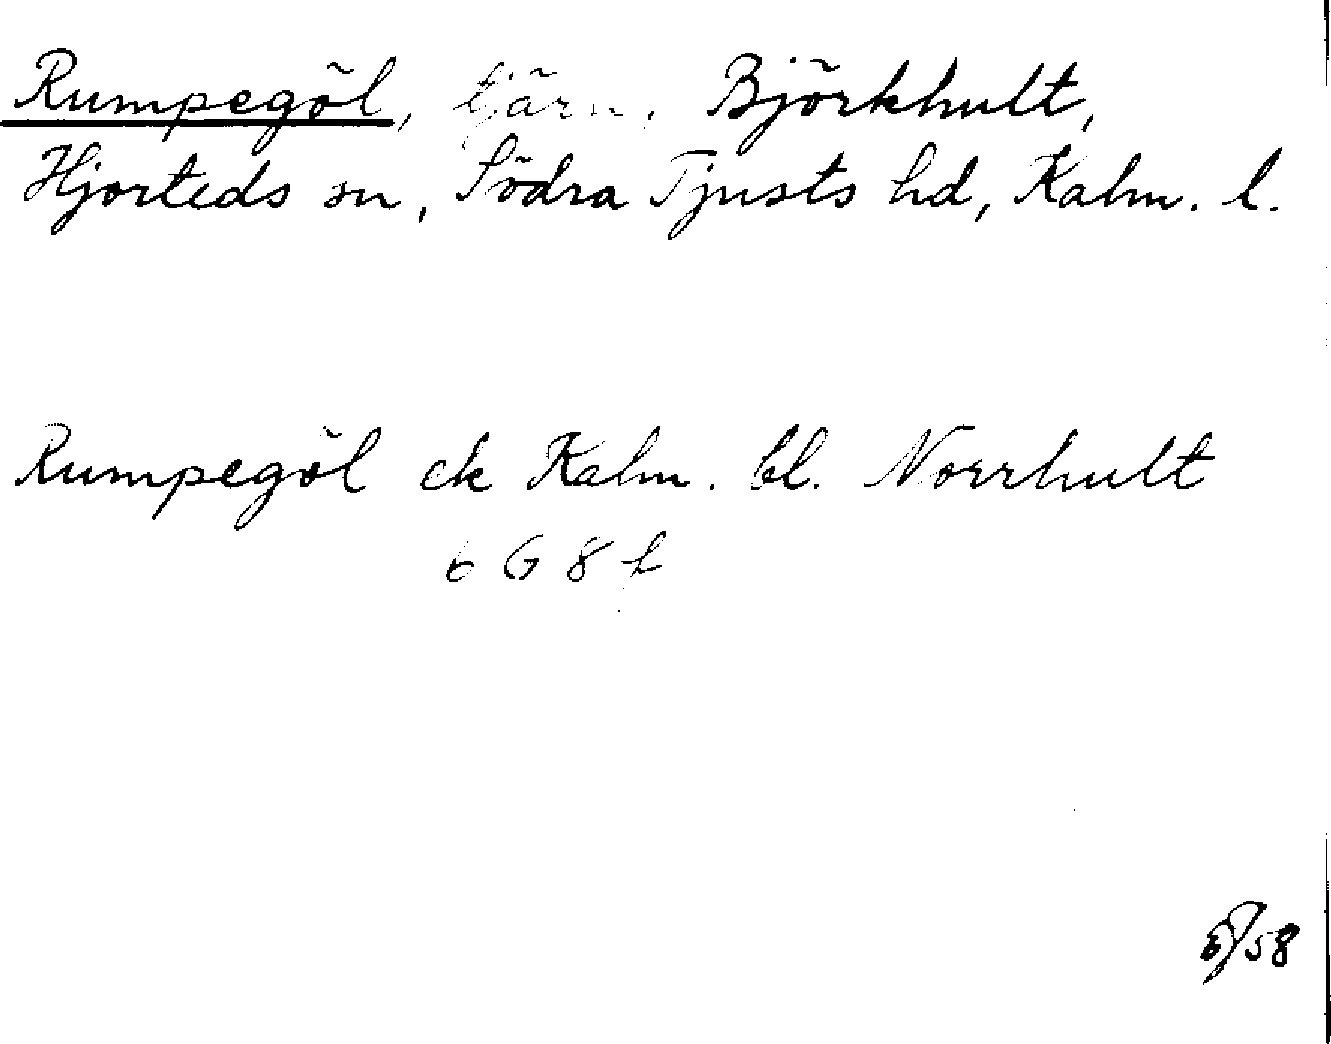 Rumpegöl, tjärn, Björkhult,
Hjorteds sn, Södra Tjusts hd, Kalm. l.
Rumpegöl ek Kalm. bl. Norrhult
6 G 8 f
58